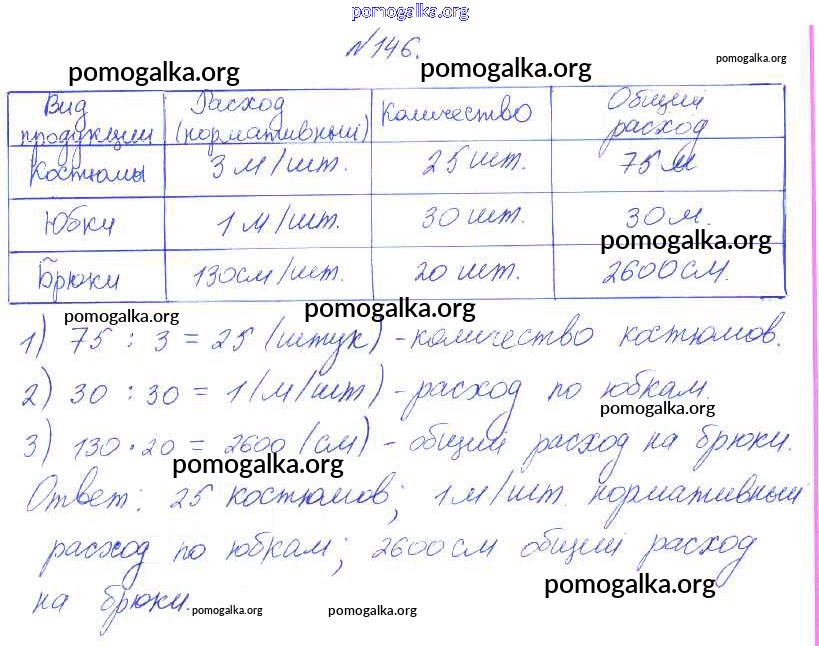 pomogalka.org
№146.
pomogalka.org pomogalka.org pomogalka.org
Вид продукции Расход (нормативный) Количество Общий расход
Костюмы 3 м/шт. 25 шт. 75 м
Юбки 1 м/шт. 30 шт. 30 м.
pomogalka.org
Брюки 130см/шт. 20 шт. 2600см.
pomogalka.org pomogalka.org
1) 75 : 3 = 25 (штук) - количество костюмов.
2) 30 : 30 = 1 (м/шт) - расход по юбкам.
pomogalka.org
3) 130 · 20 = 2600 (см) - общий расход на брюки.
pomogalka.org
Ответ: 25 костюмов; 1м/шт. нормативный
расход по юбкам; 2600см общий расход
pomogalka.org
на брюки.
pomogalka.org pomogalka.org